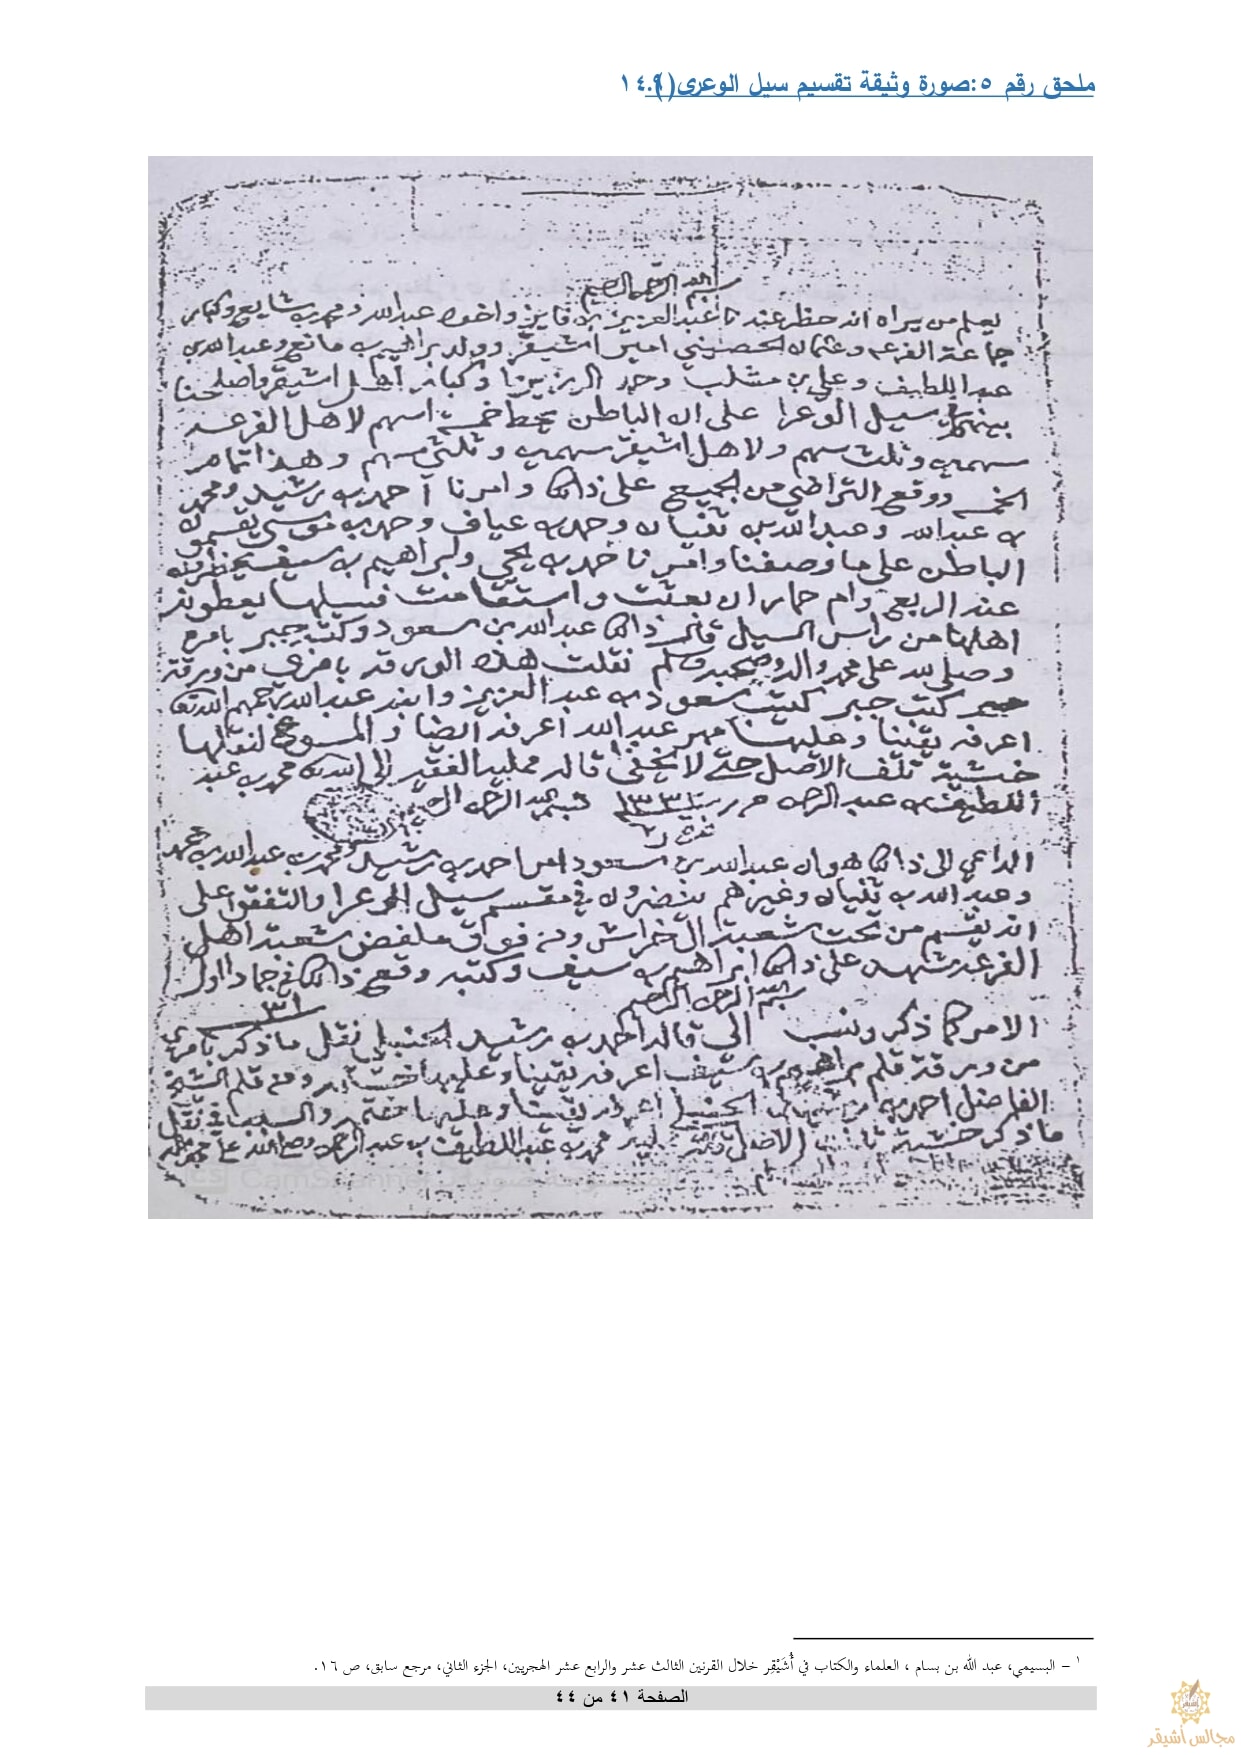 ملحق رقم ٥:صورة وثيقة تقسيم سيل الوعرى(١).١٤٩
بسم الله الرحمن الرحيم
يعلم من يراه انه حظر عندنا عبدالعزيز بن فايز واخوه عبدالله ومحمد بن شايع وكبار
جماعة الفرعه وعثمان الحصيني امير اشيقر وولد ابراهيم بن مانع وعبدالله بن
عبداللطيف وعلي بن مشلب وحمد الرزيزا وكبار أهل اشيقر واصلحنا
بينهم سيل الوعرا على ان الباطن يحط خمسة اسهم لاهل الفرعه
سهمين وثلث سهم ولاهل اشيقر سهمين وثلثي سهم وهذا تمام
الخمسه ووقع التراضي من الجميع على ذالك وامرنا احمد بن رشيد ومحمد
بن عبدالله وعبدالله بن ثنيان وحمد بن عياف وحمد بن موسى يقسمون
الباطن على ما وصفنا وامرنا حمد بن يحي وابراهيم بن سيف
عند الربع وام حمار ان بعثت واستقامت فسيلها يعطونه
اهلها من راس السيل قال ذالك عبدالله بن سعود وكتب جبر بامره
وصلى الله على محمد واله وصحبه وسلم نقلت هذه الورقه بامري من ورقة
جبر كتب جبر كتبت سعود بن عبدالعزيز وابنه عبدالله رحمهم الله
اعرفه يقينا وعليها مهر عبدالله اعرفه ايضا والمسوغ لنقلها
خشية تلف الاصل حتى لا يخفى قاله ممليه الفقير الى الله محمد بن عبد
اللطيف بن عبدالرحمن
الداعي الى ذالك هو ان عبدالله بن سعود امر احمد بن رشيد ومحمد بن عبدالله بن محمد
وعبدالله بن ثنيان وغيرهم ينضرون في مقسم سيل الوعرا واتفق على
انه يقسم من تحت شعبة الخراش ومن فوق ملفض شعبة اهل
الفرعه شهد على ذالك ابراهيم بن سيف وكتبه وقع ذالك في جماد اول
بسم الله الرحمن الرحيم
الامر كما ذكر ونسب الي قاله احمد بن رشيد الحنبلي نقل ما ذكر بامري
من ورقة قلم ابراهيم بن سيف اعرفه يقينا وعليها ومن قلم الشيخ
الفاضل احمد بن الحنبلي اعرفه يقينا وعليها ختمه والسبب في نقل
ما ذكر خشية تلف الاصل محمد بن عبداللطيف بن عبدالرحمن وصلى الله على محمد
CamScanner
١ – البسيمي، عبد الله بن بسام ، العلماء والكتاب في أُشَيْقِر خلال القرنين الثالث عشر والرابع عشر الهجريين، الجزء الثاني، مرجع سابق، ص ١٦.
الصفحة ٤١ من ٤٤
مجالس أشيقر